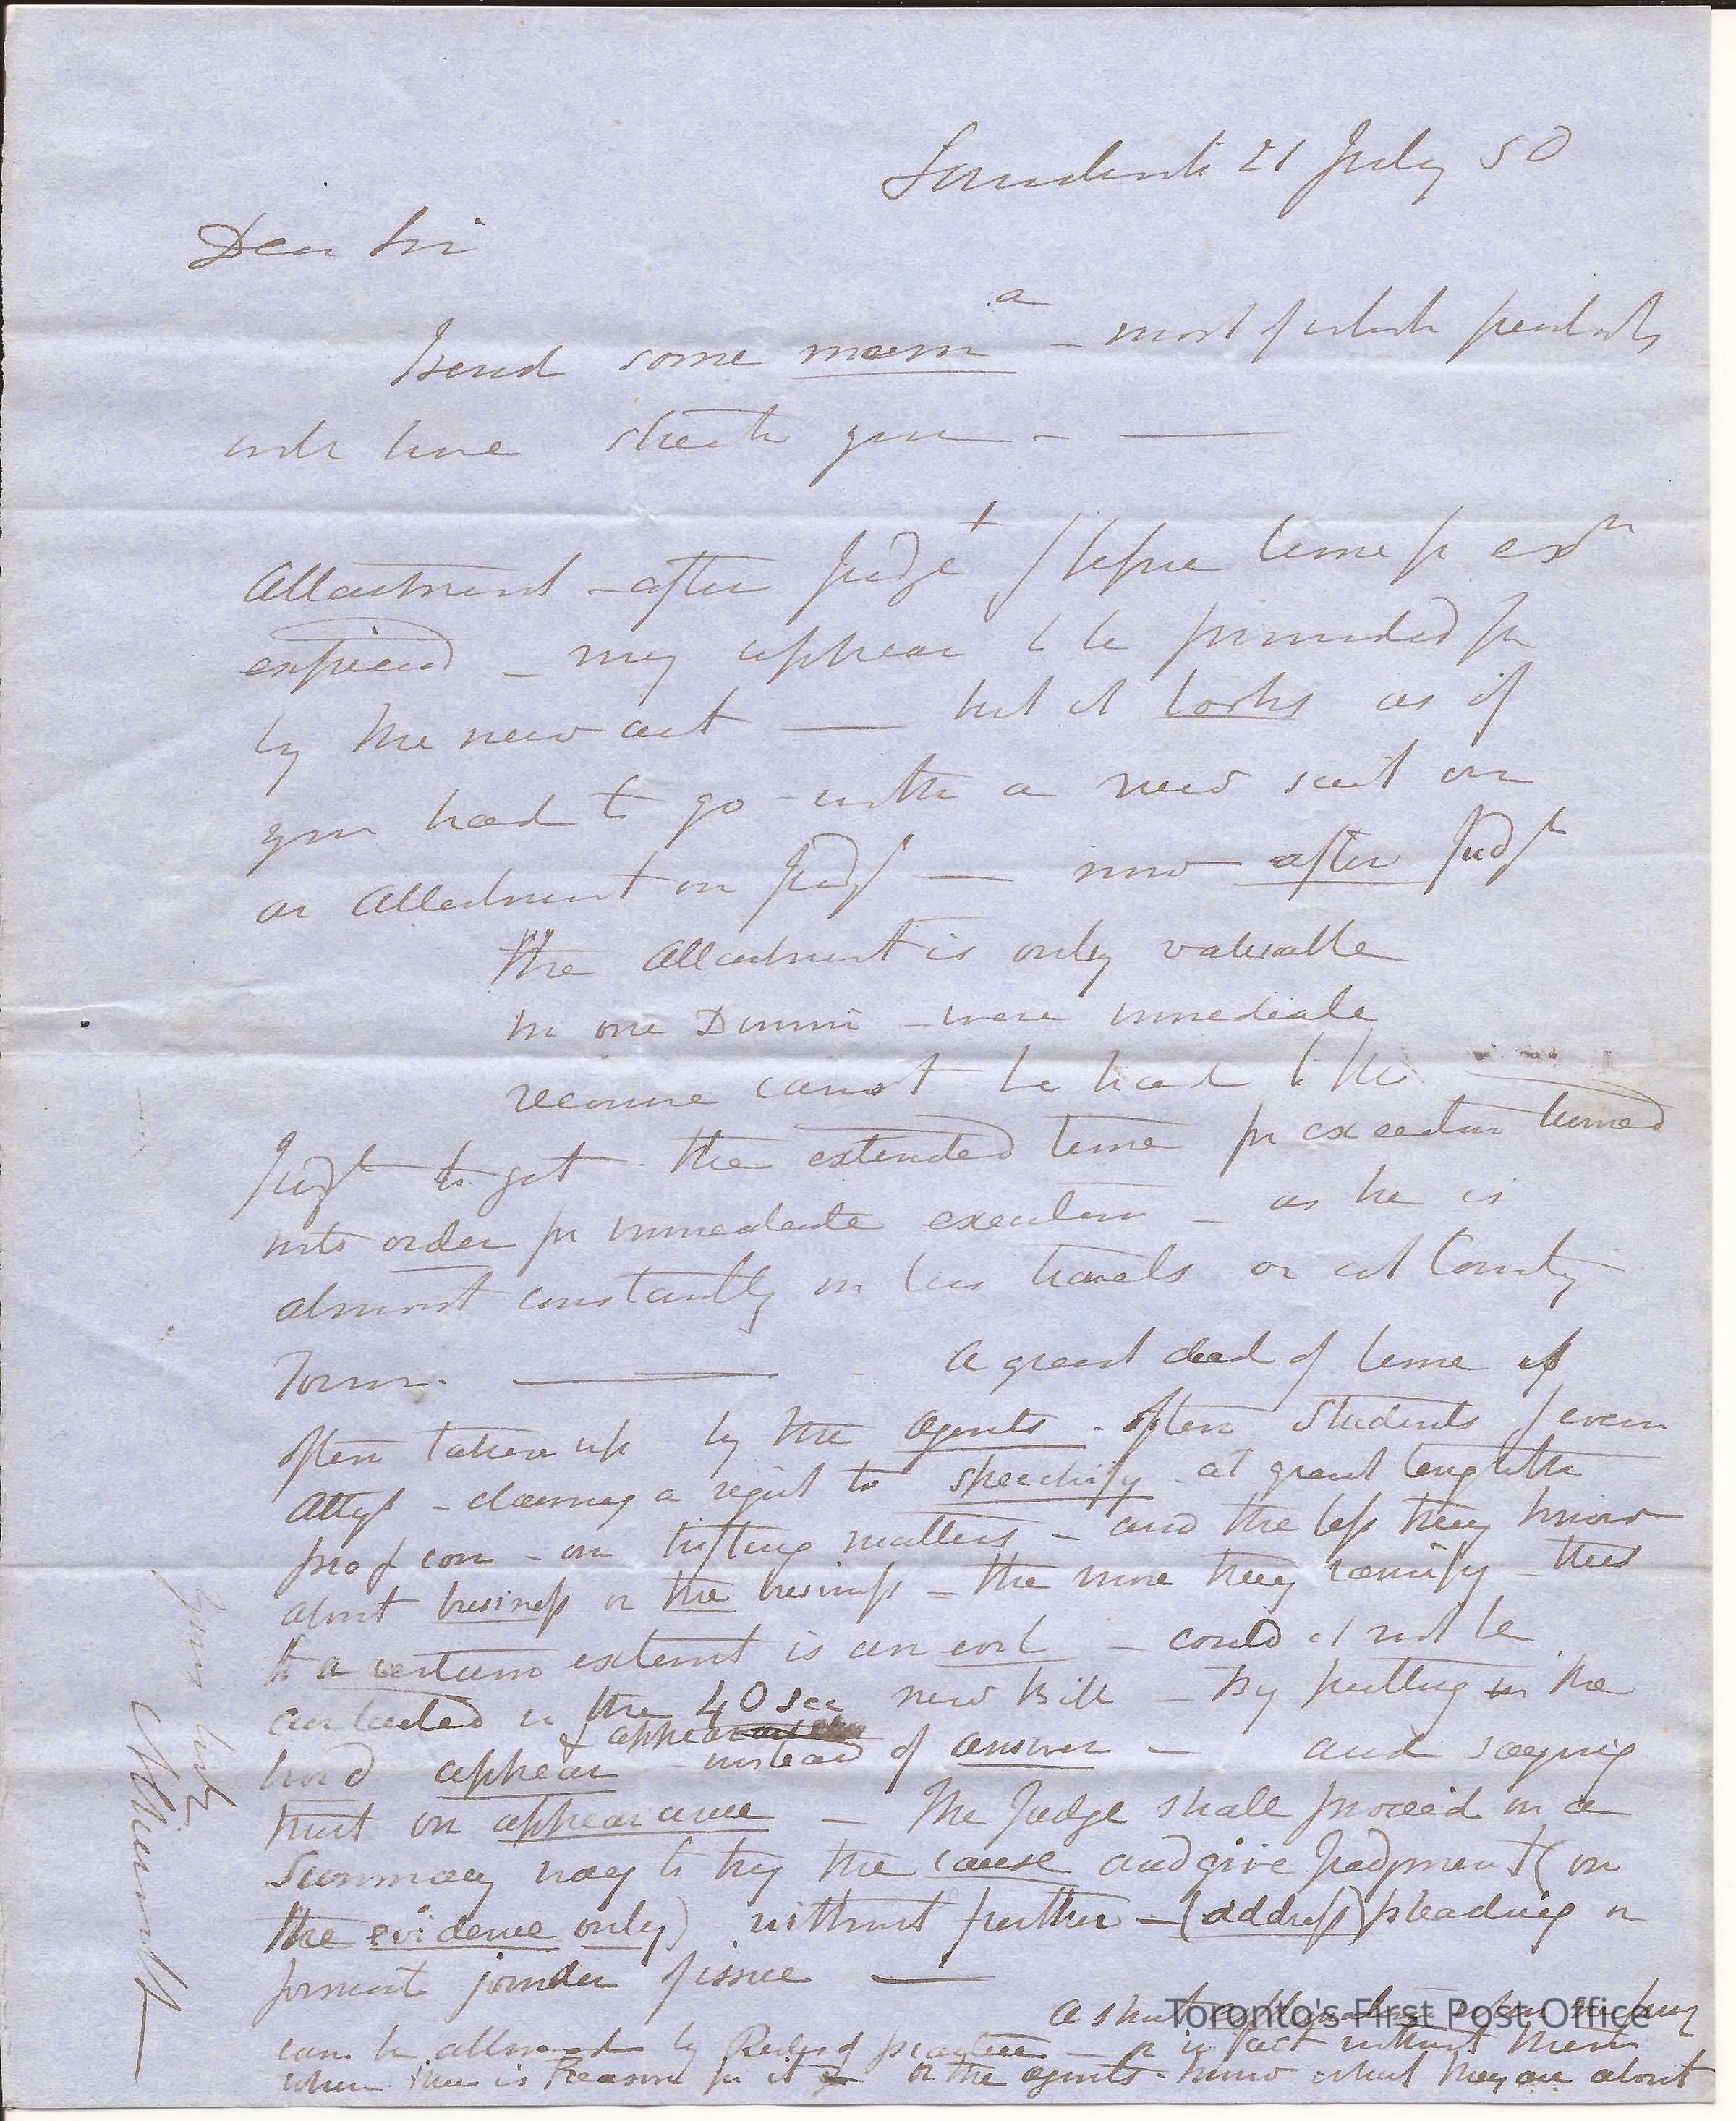 Sandwich 21 July 50
Dear Sir
I send some mem a – most of which probably
will have struck you – —
Attachment – after Judgt & before time for exn
expired – may appear to be provided for
by the new act — but it looks as if
you had to go with a new suit on
an attachment on Judgt — now after Judgt
the attachment is only valuable
in one Division – where immediate
recourse cannot be had to the
Judge to get the extended time for execution turned
into order for immediate execution – as he is
almost constantly on his travels or at County
Town. — A great deal of time is
often taken up by the agents – often Students & even
Attys – claiming a right to speechify – at great length
pro & con – on trifling matters – and the less they know
about business or the business – the more they – this
to a certain extent is an evil – could it not be
curtailed in the 40 sec new Bill – By putting in the
& appearance
word appear instead of answer – and saying
that on appearance – The Judge shall proceed in a
summary way to try the cause and give Judgment (on
the evidence only) without further – (address) pleading or
formal joinder of issue —
A short
can be allowed by Rules of practice – or in fact without them
when there is Reason for it & or the agents know what they are about
Yours truly
Toronto's First Post Office